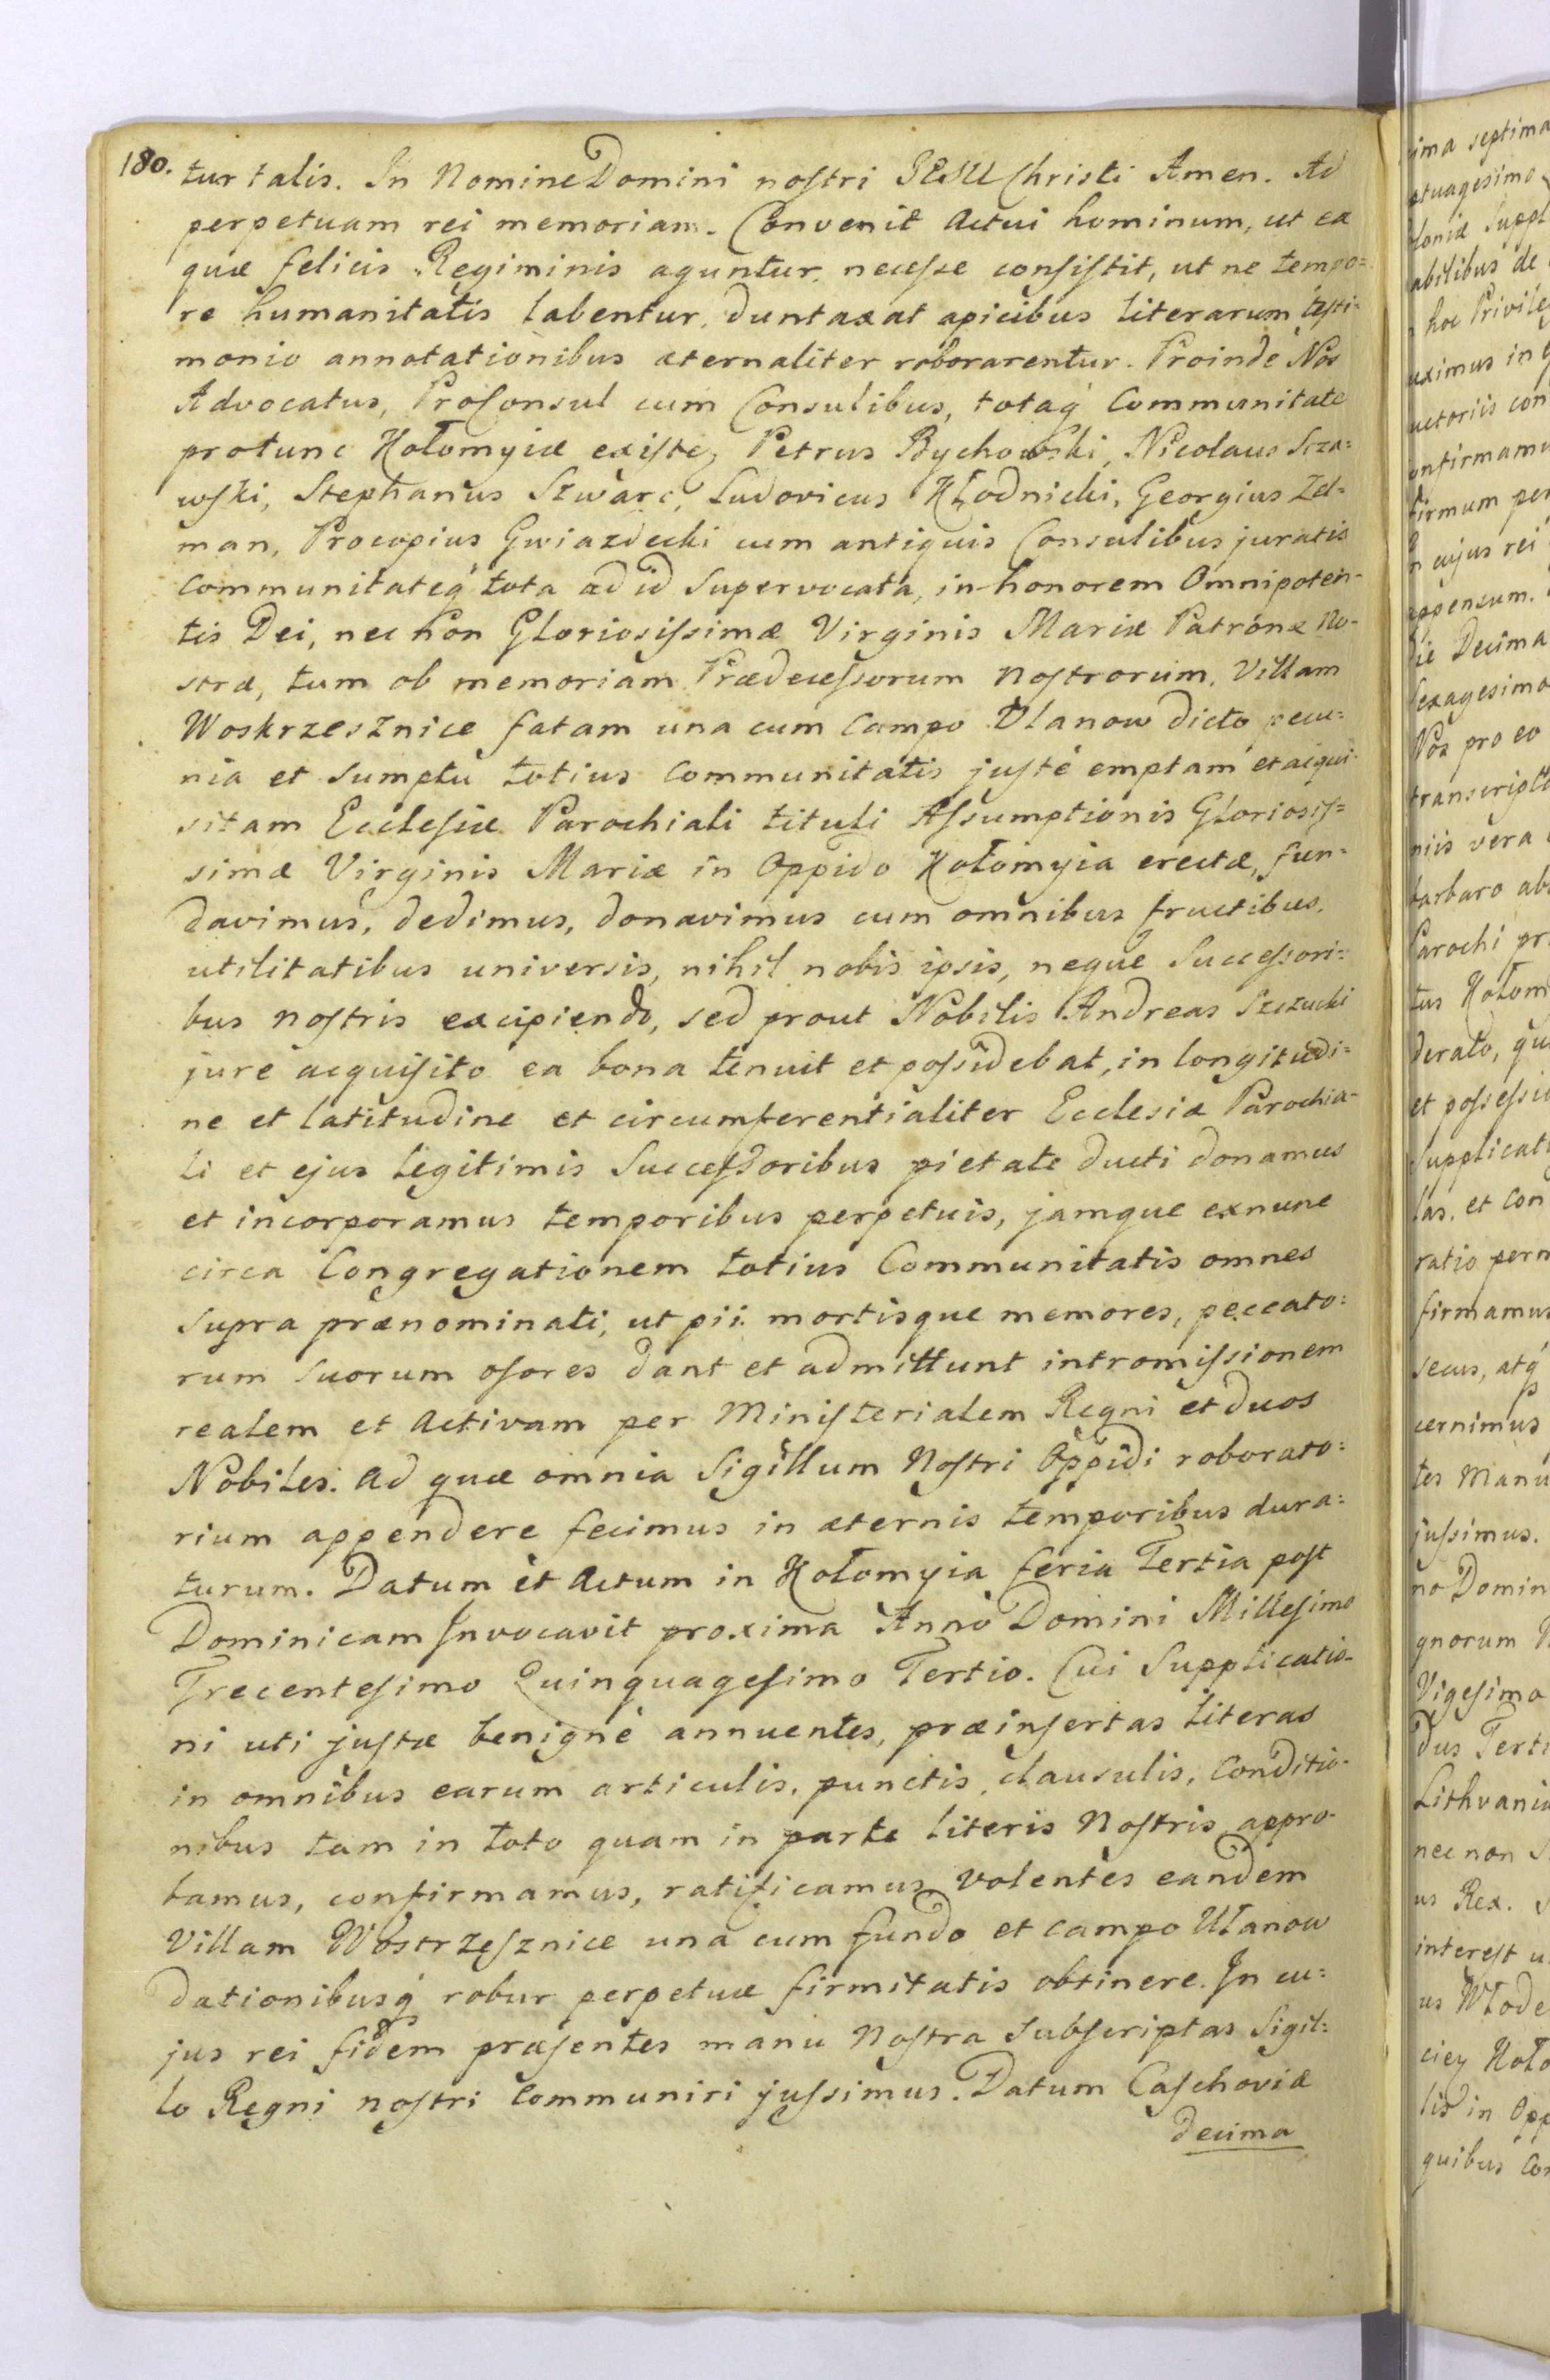 180.
tur talis. In Nomine Domini nostri JESU Christi Amen. Ad
perpetuam rei memoriam. Convenit Actui hominum, ut ea
quæ felicis Regiminis aguntur, necesse consistit, ut ne tempo=
re humanitatis labentur, duntaxat apicibus literarum testi=
monio annotationibus æternaliter roborarentur. Proinde Nos
Advocatus, Proconsul cum Consulibus, totaq́ Communitate
protunc Kołomyiæ existen, Petrus Bychowski, Nicolaus Scza=
wski, Stephanus Szwarc, Ludovicus Kłodnicki, Georgius Zel=
man, Procopius Gwiazdecki cum antiquis Consulibus juratis
Communitateq́ tota ad id Supervocata, in honorem Omnipoten-
tis Dei, nec non Gloriosissimæ Virginis Mariæ Patronæ No-
stræ, tum ob memoriam Prædecessorum Nostrorum, Villam
Woskrzesznice fatam una cum Campo Ulanow dicto, pecu=
nia et Sumptu totius Communitatis justè emptam et acqui-
sitam Ecclesiæ Parochiali tituli Assumptionis Gloriosis=
simæ Virginis Mariæ in Oppido Kołomyia erectæ, fun=
davimus, dedimus, donavimus cum omnibus fructibus,
utilitatibus universis, nihil nobis ipsis, neque Successori=
bus nostris excipiendo, sed prout Nobilis Andreas Szczucki
jure acquisito ea bona tenuit et possidebat, in longitudi=
ne et latitudine et circumferentialiter Ecclesiæ Parochia-
li et ejus legitimis Successoribus pietate ducti donamus
et incorporamus temporibus perpetuis, jamque exnunc
circa Congregationem totius Communitatis omnes
supra prænominati, ut pii mortisque memores, peccato=
rum suorum osores dant et admittunt intromissionem
realem et Activam per Ministerialem Regni et duos
Nobiles. Ad quæ omnia Sigillum Nostri Oppidi roborato=
rium appendere fecimus in æternis temporibus dura=
turum. Datum et Actum in Kołomyia feria Tertia post
Dominicam Invocavit proxima Anno Domini Millesimo
Trecentesimo Quinquagesimo Tertio. Cui Supplicatio-
ni uti justæ benignè annuentes, præinsertas literas
in omnibus earum articulis, punctis, clausulis, Conditio-
nibus tam in toto quam in parte literis Nostris appro-
bamus, confirmamus, ratificamus volentes eandem
Villam Wostrzesznice una cum fundo et campo Ułanow
dationibusq́ robur perpetuæ firmitatis obtinere. In cu=
jus rei fidem præsentes manu Nostra Subscriptas Sigil=
lo Regni nostri Communiri jussimus. Datum Caschoviæ
decima
ima septima
ptuagesimo
loniæ Suppl
abilibus de
hoc Privile
uximus in
uctoriis con
onfirmamu
firmum per
n cujus rei
appensum.
die Decima
sexagesimo
Nos pro eo
transcript
niis vera
barbaro ab
Parochi pr
tus Kołom
derato, qu
et possessio
supplicat
las, et Con
ratio perm
firmamus
secus, atq́
cernimus
tes Manu
jussimus.
no Domin
gnorum
Vigesimo
dus Terti
Lithvania
nec non S
us Rex.
interest u
us Włode
ciey Koło
lis in Opp
quibus Con